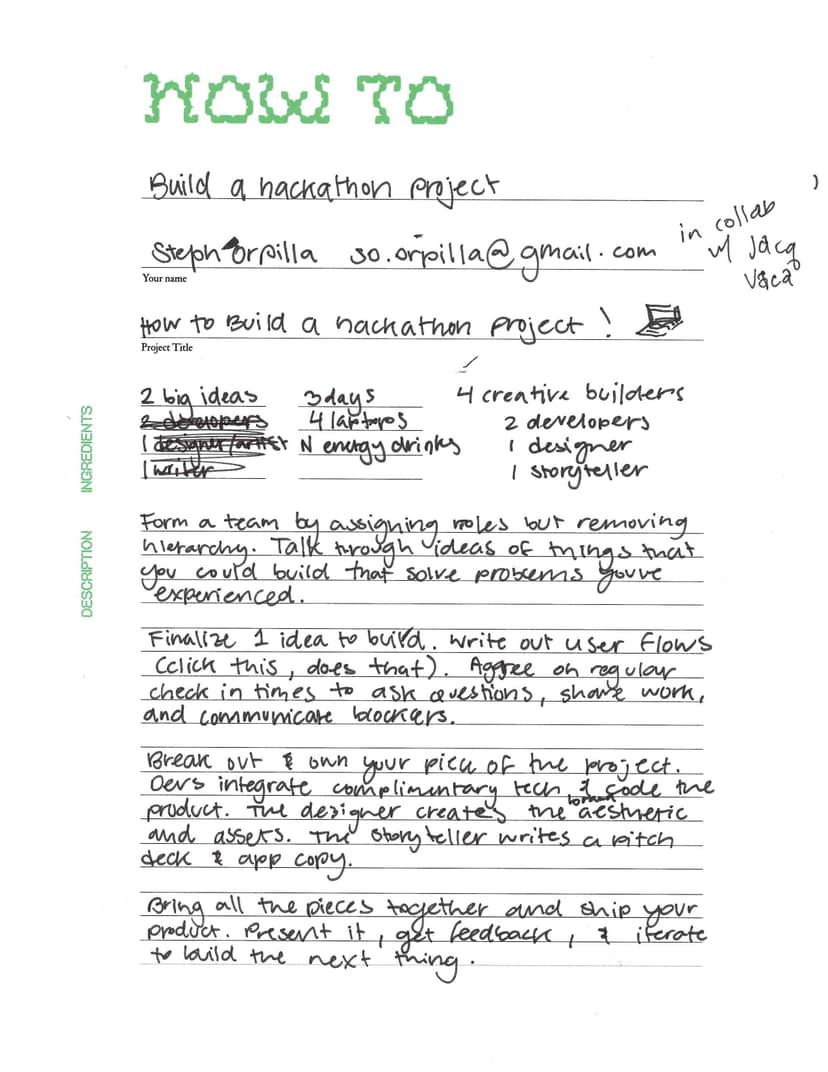 HOW TO
Build a hackathon project
Steph Orpilla so.orpilla@gmail.com
in collab
w/ Jacq
Your name
How to Build a hackathon project!
Project Title
INGREDIENTS
2 big ideas
2 developers
1 designer/artist
1 writer
3 days
4 laptops
N energy drinks
4 creative builders
2 developers
1 designer
1 storyteller
DESCRIPTION
Form a team by assigning roles but removing
hierarchy. Talk through ideas of things that
you could build that solve problems youve
experienced.
Finalize 1 idea to build. Write out user flows
(click this, does that). Aggree on regular
check in times to ask questions, share work,
and communicate blockers.
Break out & own your piece of the project.
Devs integrate complimentary tech & code the
product. The designer creates the brand aesthetic
and assets. The storyteller writes a pitch
deck & app copy.
Bring all the pieces together and ship your
product. Present it, get feedback, & iterate
to build the next thing.